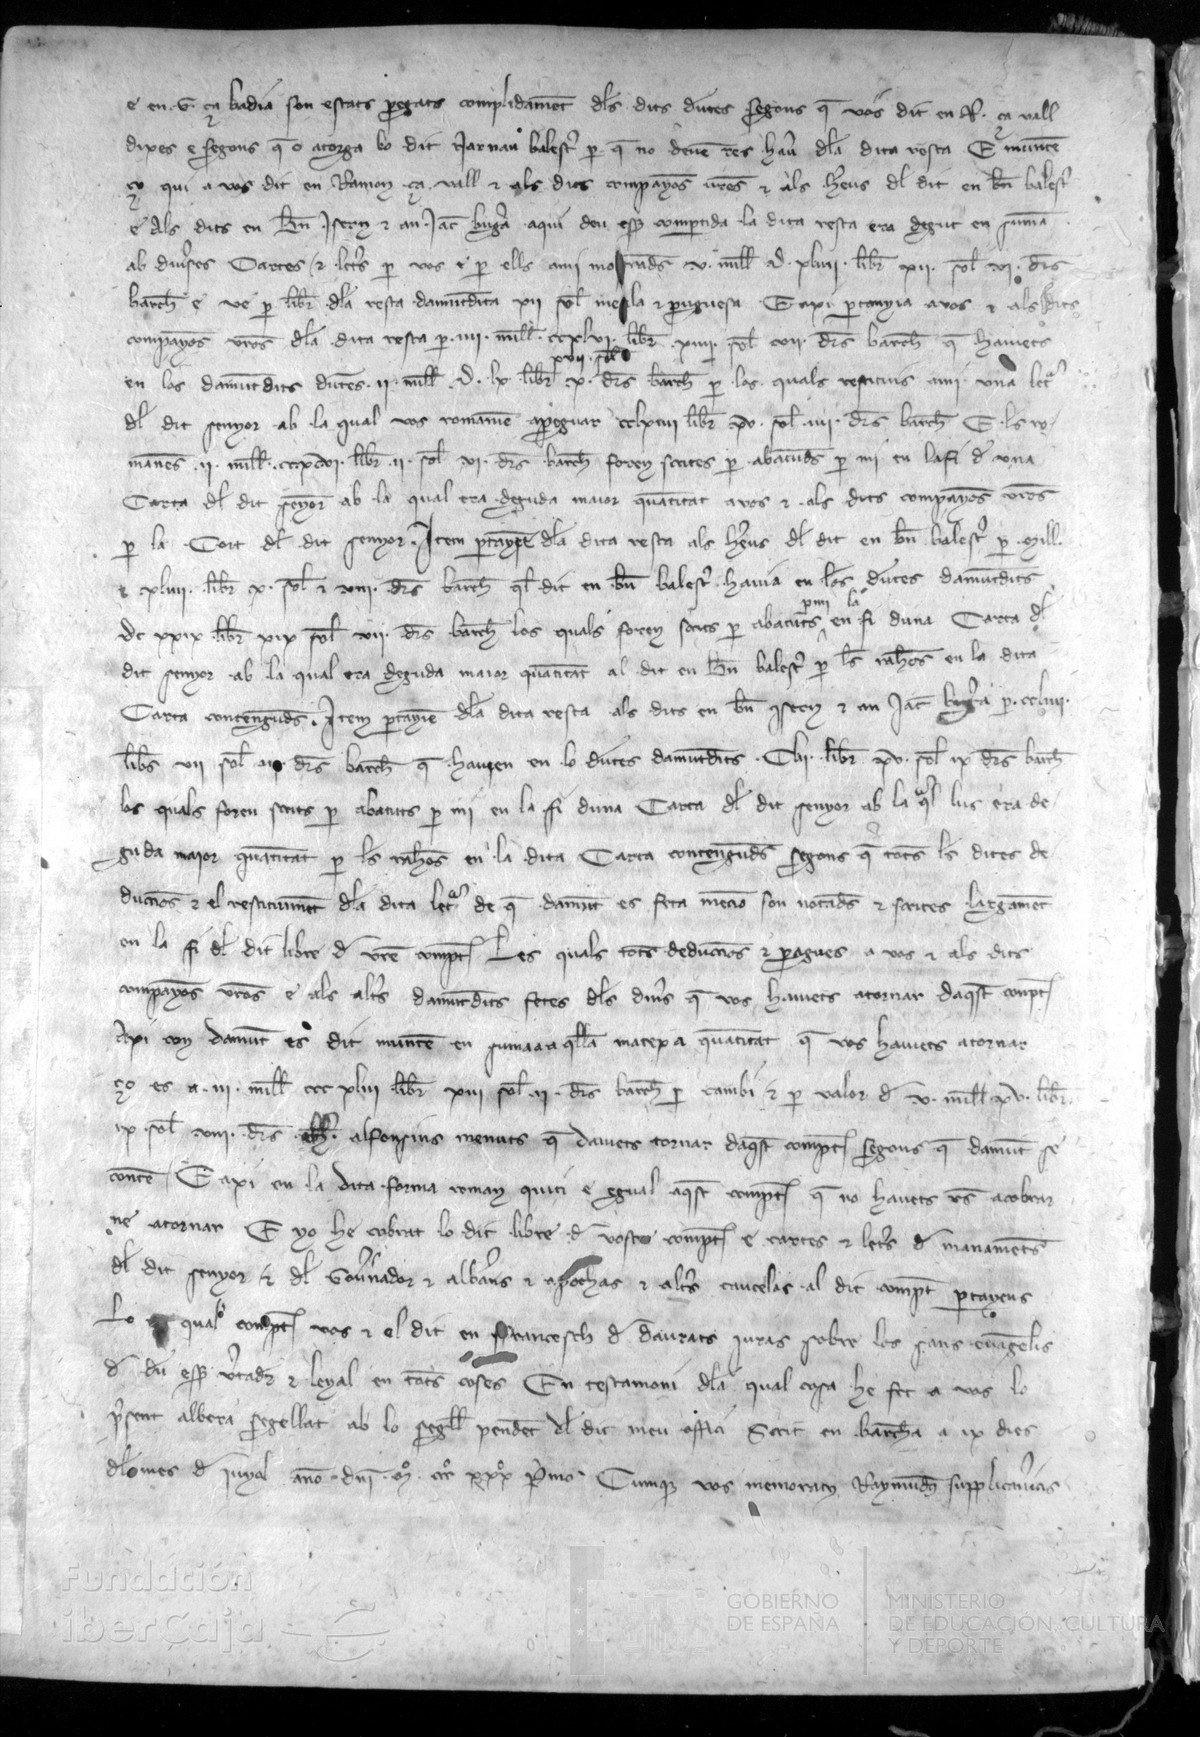 e en .G. ça badia son estats pegats complidamēt dls dits dines segons q̄ vos dit en R. ça vall
dixes e segons q̄ o atorga lo dit Narnau balest' p q̄ no deue res hau' dla dita resta E muntē
ço qui a vos dit en Ramon ça vall ⁊ als dits companyos ur̄es ⁊ als h'eus dl dit en bn̄ balest'
e als dits en Bn̄ Isern ⁊ an Jac̄ deu ess' compartida la dita resta era degut en suma
ab diuses Cartes ⁊ let's p vos e p ells v. mill D. xlvii libr̄ xii. sol vi. drs
barch̄ e ve p libr̄ dla resta damūtdita xii sol mealla ⁊ puguesa E axi ptanyia a vos ⁊ als dits
companyos vr̄os dla dita resta p iiii. mill ccxlvi. libr̄ xiiii sol vii. drs barch̄ q̄ hauiets
xvii. sol
en los damūtdits dines .ii. mill .D. lx. libr̄ x. drs barch̄ p los quals restituis ami una let'
dl dit senyor ab la qual vos romanie apegar libr̄ xv. sol iiii. drs barch̄ E ls ro
manēs .ii. mill libr̄ .ii. sol vi. drs barch̄ foren scrites p abatuds p mi en la fi d' una
Carta dl dit senyor ab la qual era deguda maior quātitat a vos ⁊ als dits companyos vr̄os
p la Cort dl dit senyor. Item ptanye dla dita resta als h'eus dl dit en bn̄ balest' p mill
⁊ xlviii. libr̄ x. sol ⁊ viii. drs barch̄ ql dit en bn̄ balest' hauia en los dines damūtdits
pmi la
Dc xxix libr̄ xix sol vii. drs barch̄ los quals foren scrits p abatuts en fi duna Carta dl
dit senyor ab la qual era deguda maior quātitat al dit en Bn̄ balest' p ls raho͞s en la dita
Carta contenguds. Item ptanye dla dita resta als dits en bn̄ Isern ⁊ an Jac̄ p. ccliiii.
libr̄s vii sol drs barch̄ q̄ hauien en lo dines damūtdits. Clii. libr̄ xv. sol ix drs barch̄
los quals foren scrits p abatuts p mi en la fi duna Carta dl dit senyor ab la ql lus era de
guda maior quātitat p ls raho͞s en la dita Carta contenguds segons q̄ totes ls dites de
duccio͞s ⁊ el restituimēt dla dita let'a de q̄ damūt es feta mencio son notads ⁊ scrites largamēt
en la fi dl dit libre d' vr̄e compt̄ Les quals totes deduccio͞s ⁊ pagues a vos ⁊ als dits
companyos vr̄os e als alt's damūtdits fetes dls din's q̄ vos hauiets atornar daqst compt̄
Axi con damūt es dit muntē en suma a aqlla matexa quātitat q̄ vos hauiets atornar
ço es a .iii. mill ccc xliii libr̄ xiii sol ii. drs barch̄ p cambi ⁊ p valor d' v. mill xv. libr̄
ix. sol viii. drs alfonsins menuts q̄ dauiets tornar daqst compt̄ segons q̄ damūt se
contē E axi en la dita forma roman quiti e egual aqst compt̄ q̄ no hauets rs acobrar
ne atornar E yo he cobrat lo dit libre d' vostre compt̄ e cartes ⁊ let's d' manamēts
dl dit senyor ⁊ dl Gou'nador ⁊ albar̄s ⁊ apochas ⁊ alt's cauteles al dit compt̄ ptanyens
Lo qual compt̄ vos ⁊ el dit en Ffrancesch d' daurats iuras sobre los sans euāgelis
d' du ess' v'tad' ⁊ leyal en totes coses En testimoni dla qual cosa he fet a vos lo
p'sent albera segellat ab lo segell pendēt dl dit meu offici Scrit en barch̄a a ix dies
dlmes d' Juyol ano dn̄i .m̊. ccc̊ xxx̊ p'mo Cumq; vos memoratus Raymūd' supplicaūis
Fundación
iberCaja
GOBIERNO
DE ESPAÑA
MINISTERIO
DE EDUCACIÓN, CULTURA
Y DEPORTE